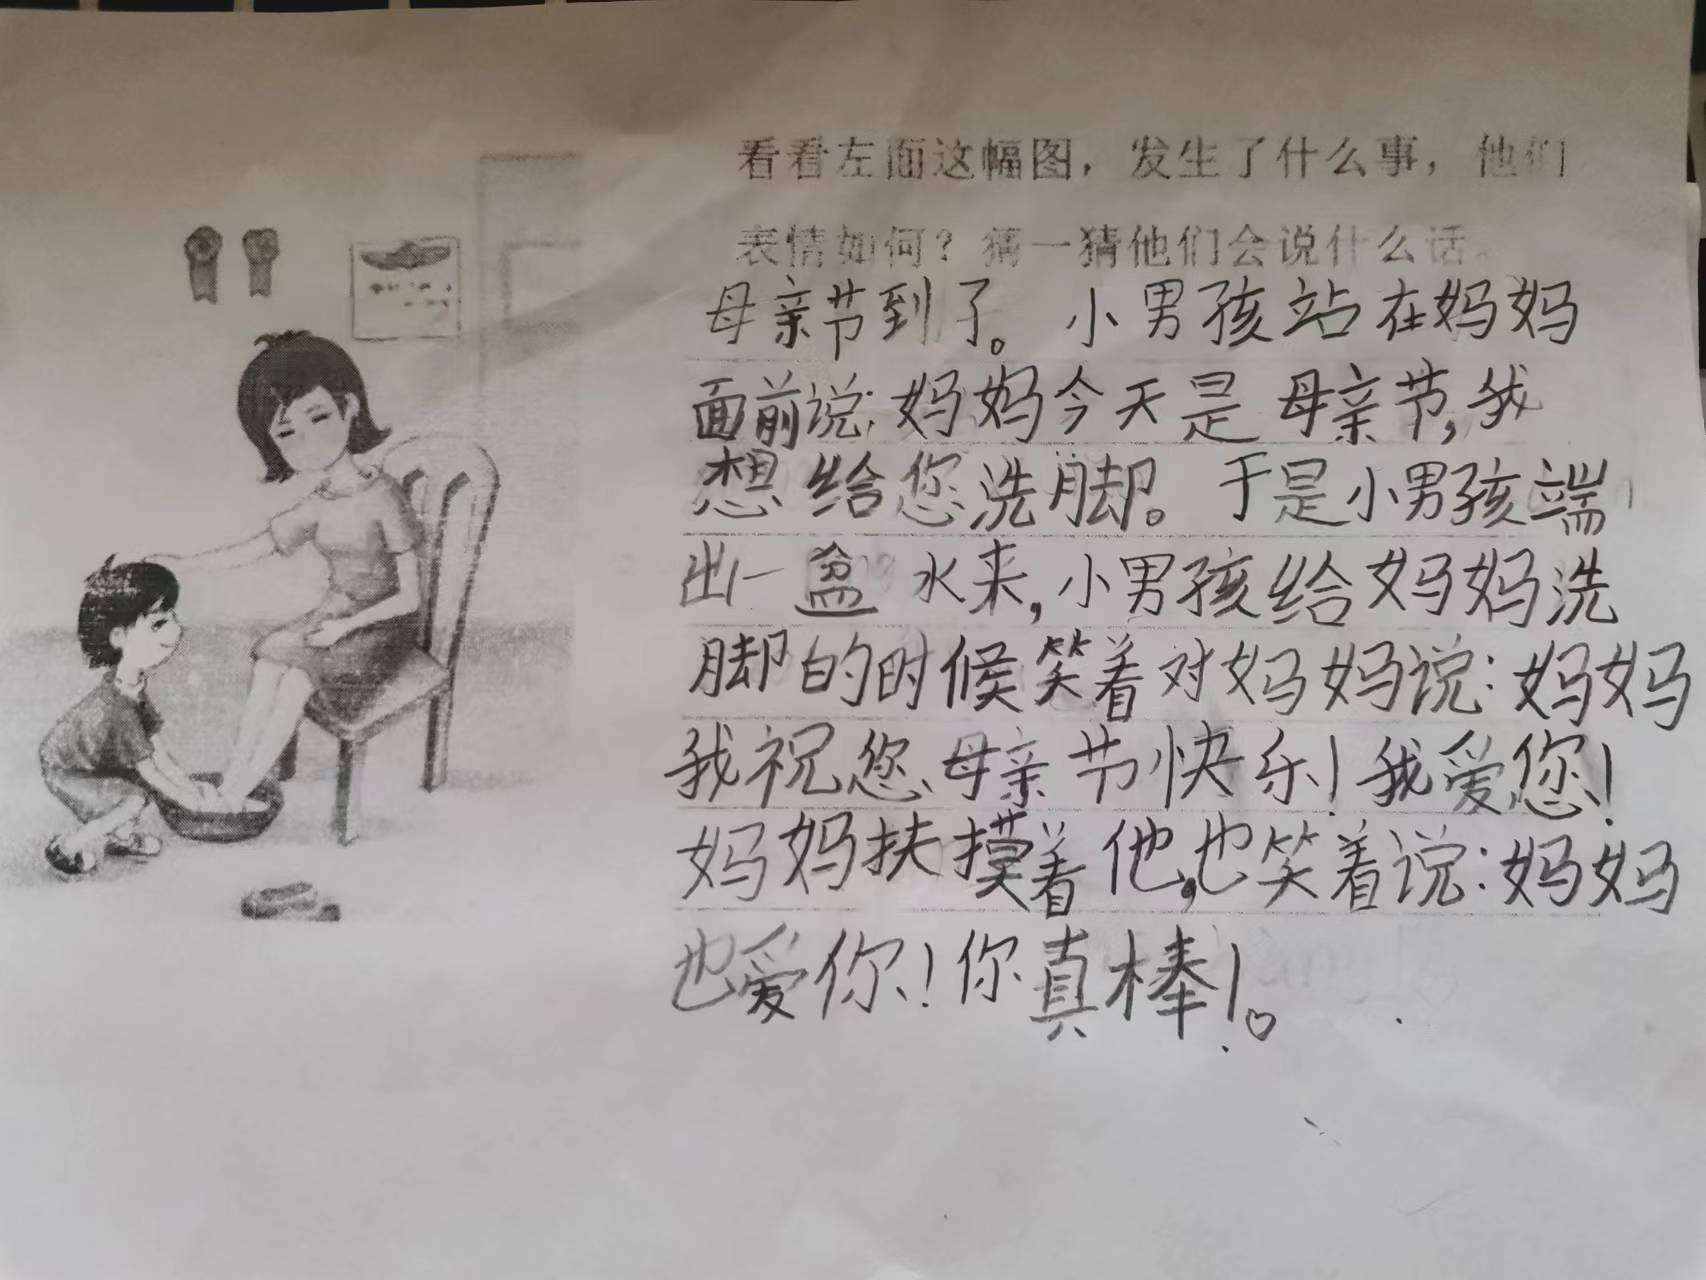 看看左面这幅图，发生了什么事，他们
表情如何？猜一猜他们会说什么话。
母亲节到了。小男孩站在妈妈
面前说:妈妈今天是母亲节,我
想给您洗脚。于是小男孩端
出一盆水来,小男孩给妈妈洗
脚的时候笑着对妈妈说:妈妈
我祝您母亲节快乐!我爱您!
妈妈扶摸着他,也笑着说:妈妈
也爱你!你真棒!。